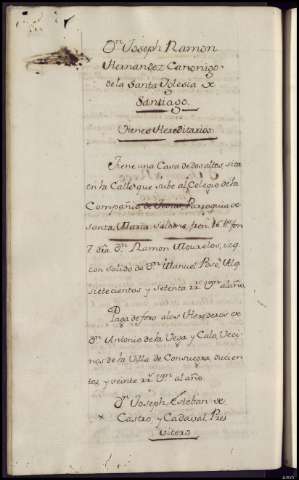 Dn. Joseph Ramon
Hernandez Canonigo
de la Santa Iglesia de
Santiago.
Vienes Hereditarios
Tiene una Casa de dos altos, sita
en la Calle que sube al Colegio de la
Compañia de Jesus, Parroquia de
santa Maria Salome
Dn. Ramon
con salido de Dn. Manuel
sietecientos y setenta rr. vn. al año
Paga de foro a los Herederos de
Dn. Antonio de la Vega y Calo, Veci-
nos de la Villa de Consuegra, ducien-
tos y veinte rr. vn. al año
Dn. Joseph Esteban de
Castro, y Cadaval Pres
vitero